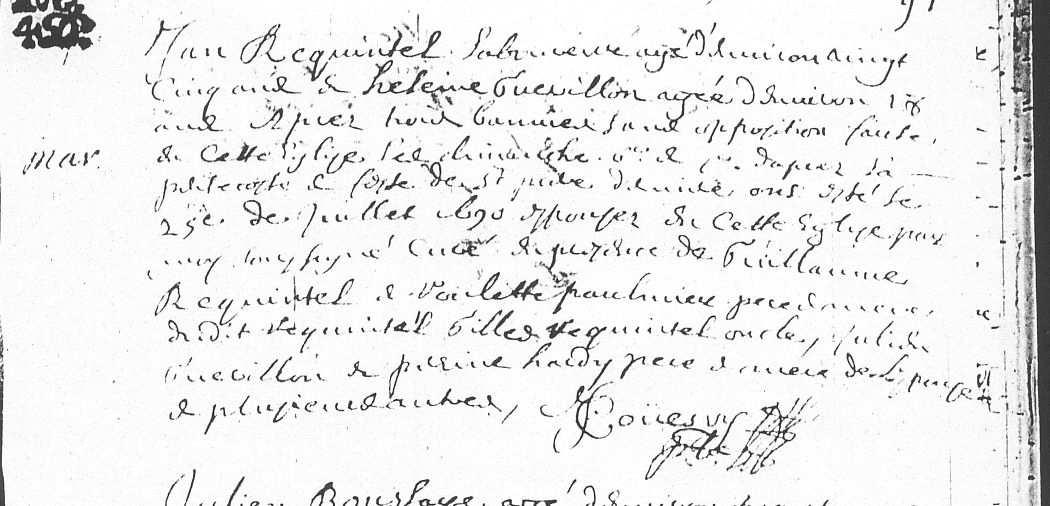 Jan Requintel laboureur agé d'environ vingt
Cinq ans & heleine Guevillon agée d'environ 18
ans Apres trois bannies sans opposition faites
mar.
En Cette Eglise les dimanche 6e & 7e d'apres la
pentecoste & feste de St pierre derniere ont esté le
25e de Juillet 1690 espousez En Cette Eglise par
moy soussigné Curé En presence de Guillaume
Requintel & Paulmiere pere & mere
dudit requintel Gilles requintel oncle, Julien
Guevillon & perrine hardy pere & mere de l'espouse
& plusieurs autres,
Julien agé d'environ